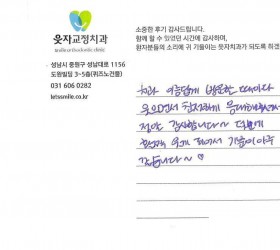 웃자교정치과
wells orthodontic clinic
성남시 중원구 성남대로 1156
도원빌딩 3~5층(퀴즈노건물)
031 606 0282
letssmile.co.kr
소중한 후기 감사드립니다.
함께 할 수 있었던 시간에 감사하며,
환자분들의 소리에 귀 기울이는 웃자치과가 되도록 하겠
치과 방문한 때마다
웃으면서 친절하게 응대해주셔서
정말 감사합니다~
되어서 기쁨이 아주